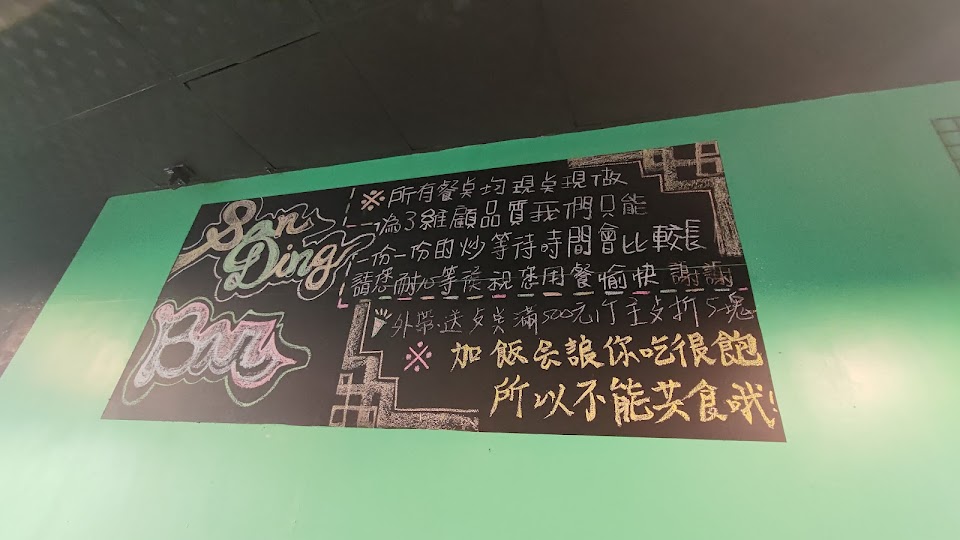 San
Ding
Bar
※所有餐點均現點現做
為了維顧品質我們只能
一份一份的炒等待時間會比較長
請您耐心等候祝您用餐愉快 謝謝
外帶送 滿500元 折5塊
※ 加飯会讓你吃很飽
所以不能共食哦!